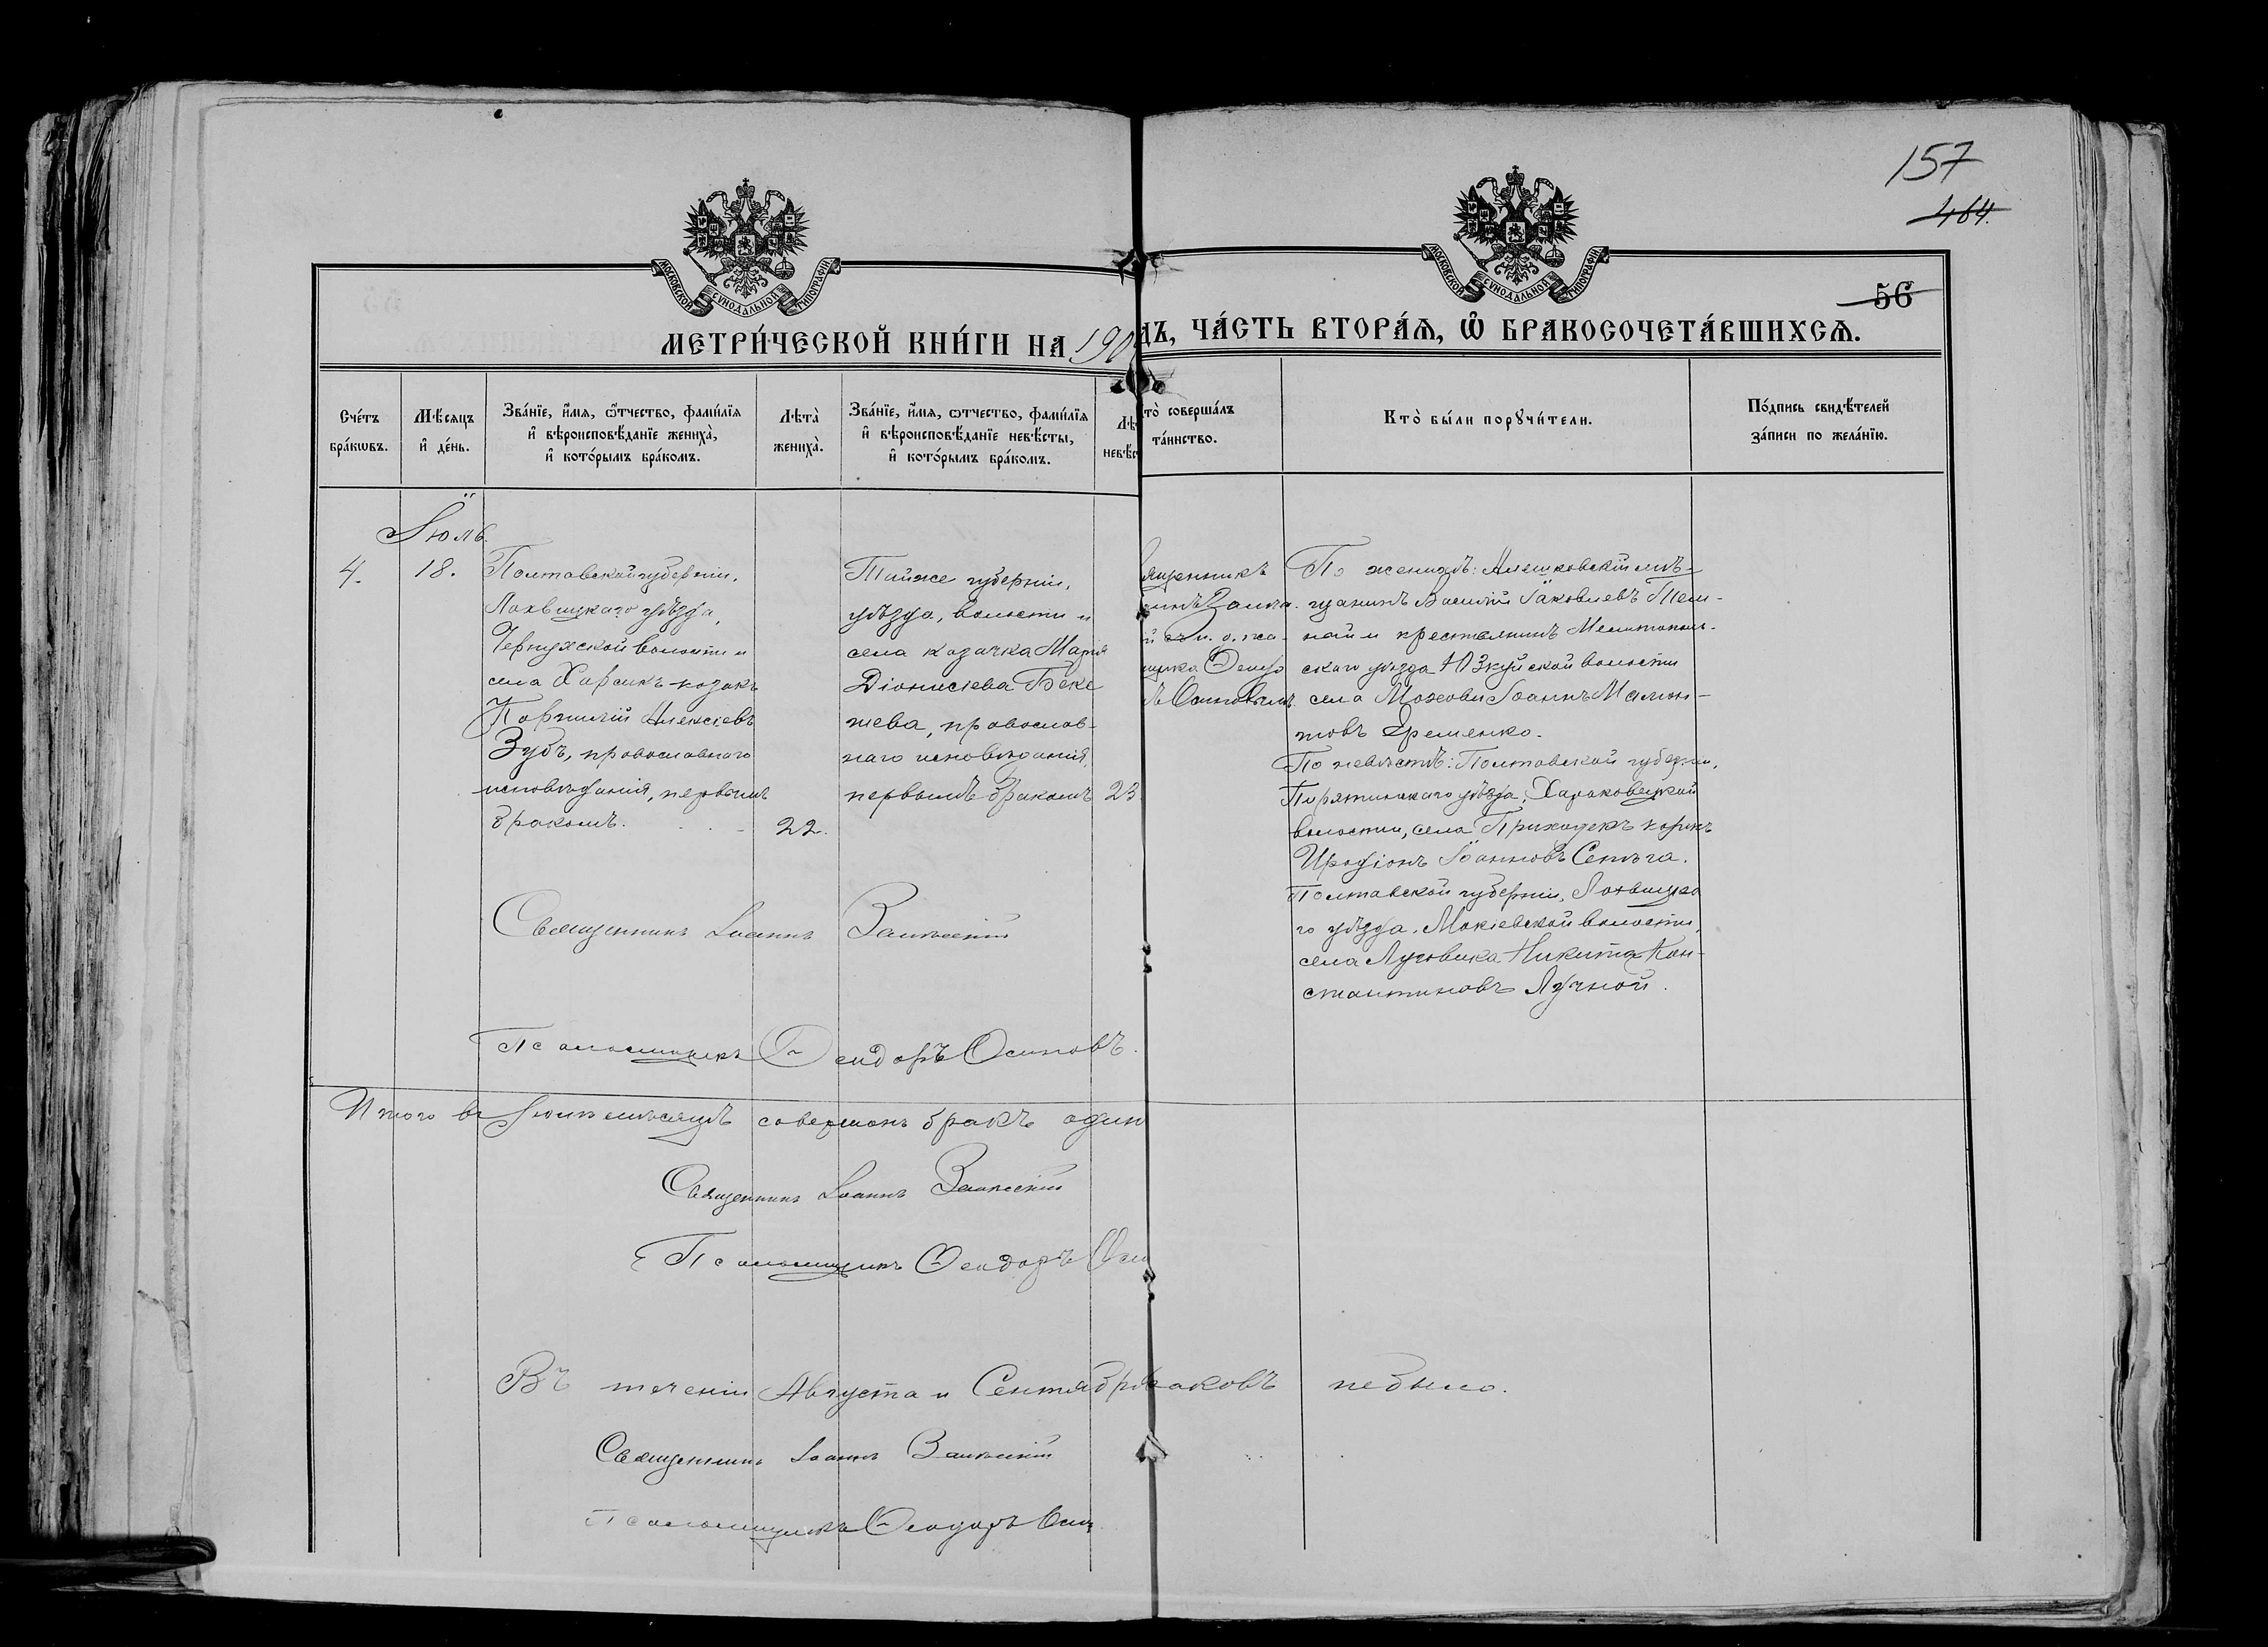 157
464.
МОСКОВСКОЙ СѴНОДАЛЬНОЙ ТИПОГРАФІИ
МОСКОВСКОЙ СѴНОДАЛЬНОЙ ТИПОГРАФІИ
56
МЕТРИ́ЧЕСКОЙ КНИ́ГИ НА 190
ДЪ, ЧА́СТЬ ВТОРА́Ѧ, Ѡ҆ БРАКОСОЧЕТА́ВШИХСѦ.
Сче́тъ бра́кѡвъ.
Мѣ́сяцъ и҆ де́нь.
Зва́нїе, и҆́мѧ, ѻ҆́тчество, фамилїѧ и҆ вѣроисповѣ́данїе жениха̀, и҆ кото́рымъ бра́комъ.
Лѣта̀ жениха̀.
Зва́нїе, и҆́мѧ, ѻ҆́тчество, фамилїѧ и҆ вѣроисповѣ́данїе невѣ́сты, и҆ кото́рымъ бра́комъ.
Лѣ невѣ́с
то̀ соверша́лъ та́инство.
Кто̀ бы́ли порꙋчи́тели.
По́дпись свидѣ́телей за́писи по жела́нїю.
Іюль.
4.
18.
Полтавской губерніи,
Лохвицкаго уѣзда,
Чернухской волости и
села Харсикъ козакъ
Корнилій Алексіевъ
Зубъ, православнаго
исповѣданія, первымъ
бракомъ.
22.
Тойже губерніи,
уѣзда, волости и
села козачка Марія
Діонисіева Беке
жева, православ-
наго исповѣданія,
первымъ бракомъ
23
ященникъ
По женихѣ: Алешковскій мѣ-
щанинъ Василій Іаковлевъ Теле-
крестьянинъ Мелитополь-
скаго уѣзда Юзкуйской волости
Ѳеодо
Осиповымъ
села Іоаннъ
товъ Еременко.
По невѣстѣ: Полтавской губерніи,
Пирятинскаго уѣзда, Харьковецкой
волости, села Приходекъ козакъ
Иродіонъ Іоанновъ
Полтавской губерніи, Лохвицка
го уѣзда, Мокіевской волости,
села Луговика Никита Кон-
стантиновъ Лучной.
Священникъ Іоаннъ
Псаломщикъ Ѳеодоръ Осиповъ.
Итого въ Іюлѣ мѣсяцѣ совершонъ бракъ один
Священникъ Іоаннъ
Псаломщикъ Ѳеодоръ Оси
Въ теченіи Августа и Сентябр браковъ небыло.
Священникъ Іоаннъ
Псаломщикъ Ѳеодоръ Осип